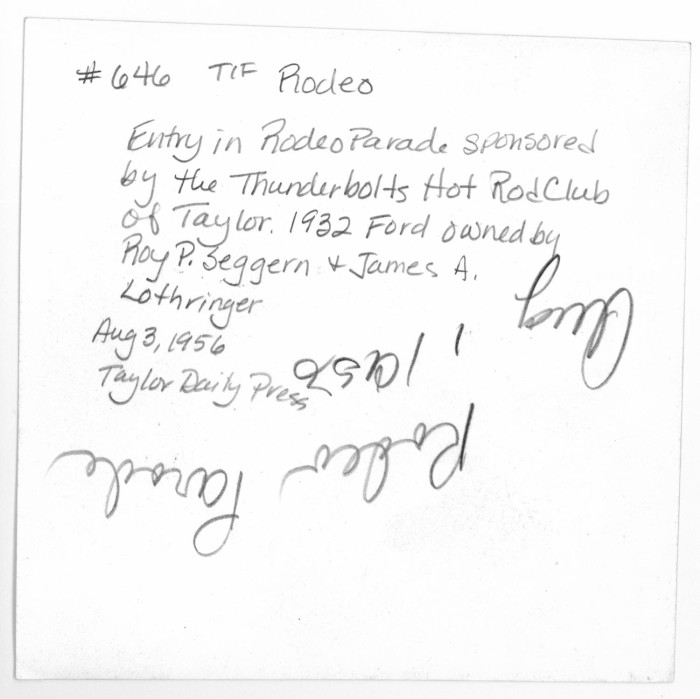 #646 TIF Rodeo
Entry in Rodeo Parade sponsored
by the Thunderbolts Hot Rod Club
of Taylor. 1932 Ford owned by
Roy P. Zeggern + James A.
Lothringer
Aug 3, 1956
Taylor Daily Press
Aug 1, 1956
Rodeo Parade